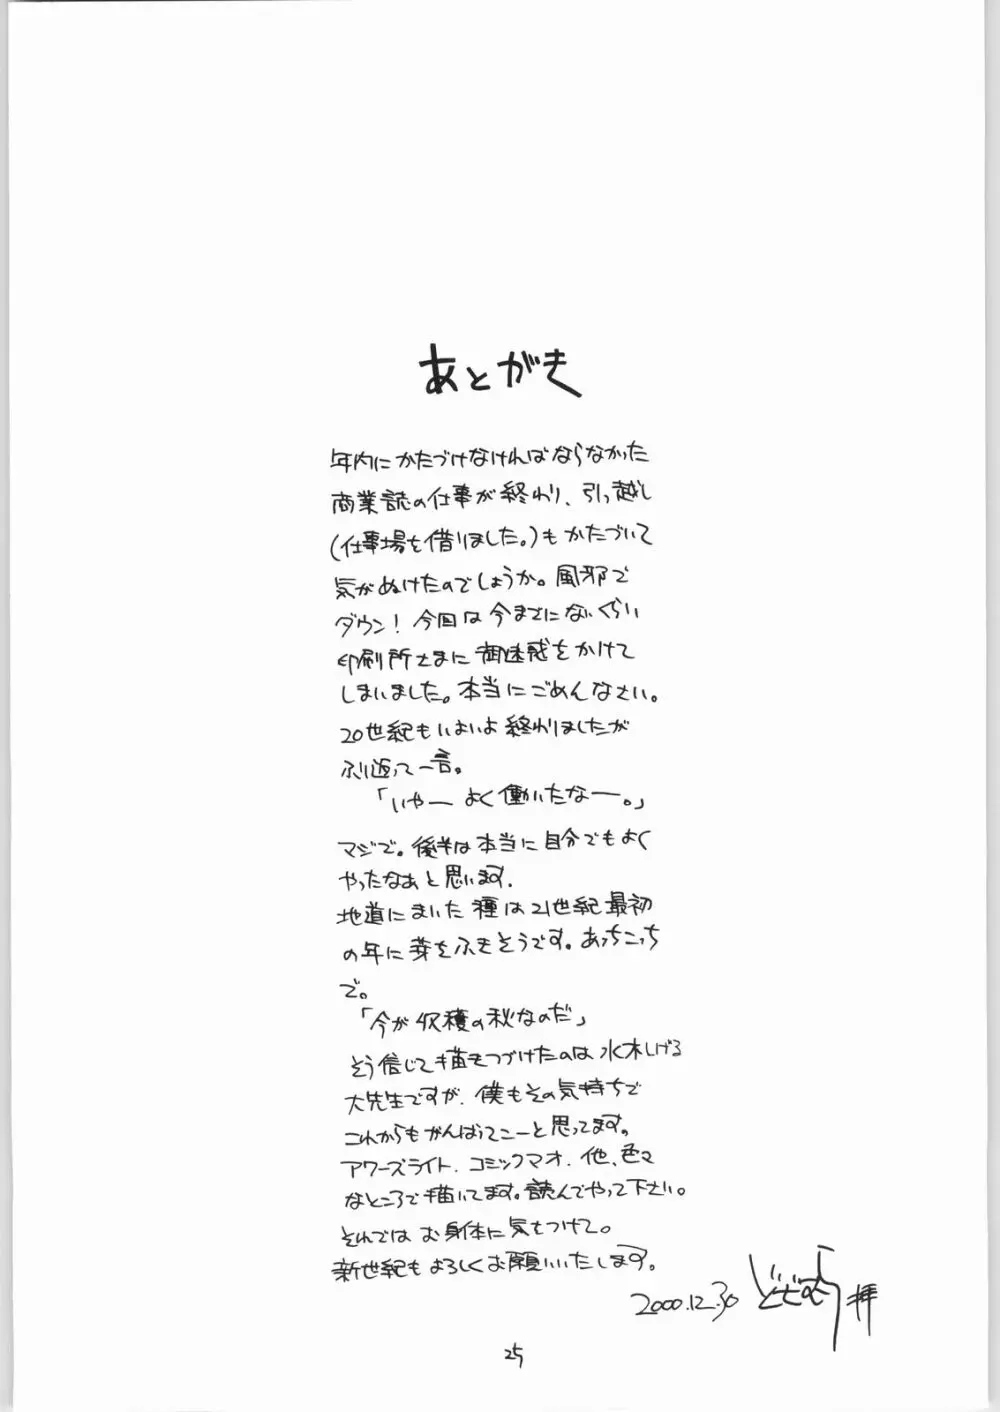 あとがき
年内にかたづけなければならなかった
商業誌の仕事が終わり、引っ越し
(仕事場を借りました。)もかたづいて
気がぬけたのでしょうか。風邪で
ダウン!今回は今までにないくらい
印刷所さまに御迷惑をかけて
しまいました。本当にごめんなさい。
20世紀もいよいよ終わりましたが
ふり返って一言。
「いやー よく働いたなー。」
マジで。後半は本当に自分でもよく
やったなぁと思います.
地道にまいた種は21世紀最初
の年に芽をふきそうです。あっちこっち
で。
「今が収穫の秋なのだ」
そう信じて描きつづけたのは水木しげる
大先生ですが、僕もその気持ちで
これからもがんばってこーと思ってます。
アワーズライト、コミックマオ、他、色々
なところで描いてます。読んでやって下さい。
それではお身体に気をつけて。
新世紀もよろしくお願いいたします。
2000.12.30 どざむら 拝
25